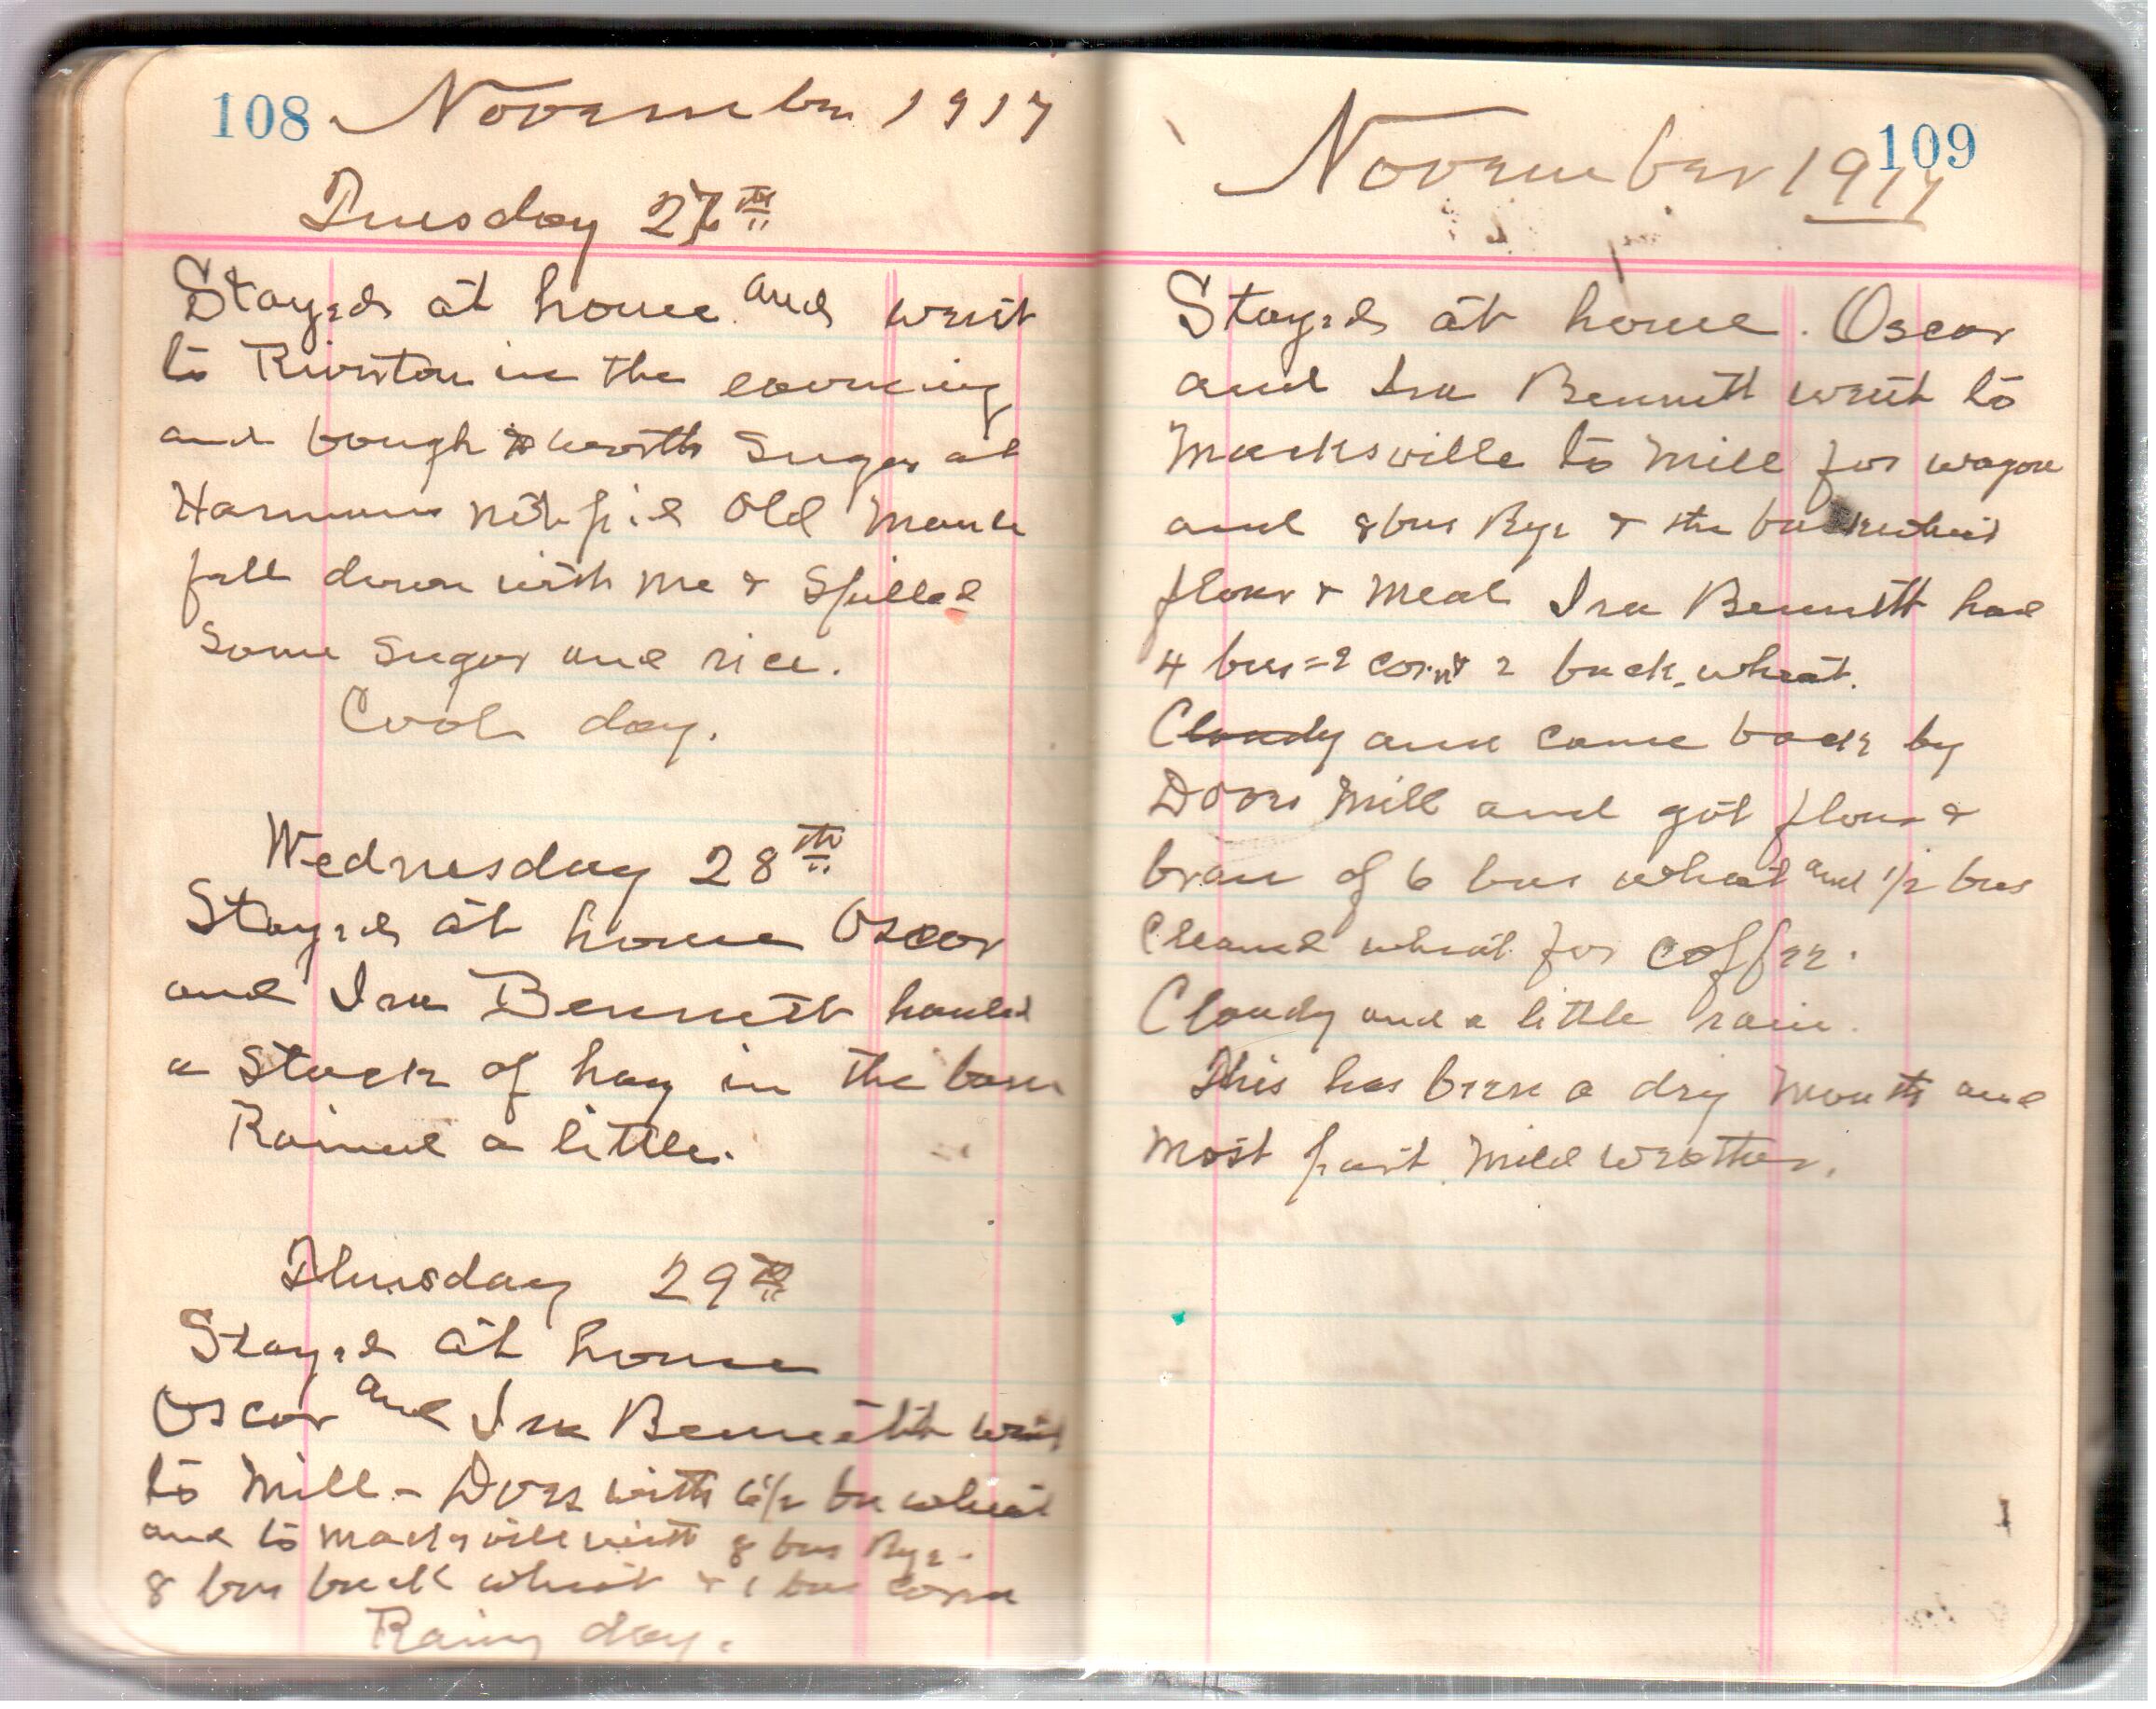 108 November 1917
Tuesday 27th
Stayed at home and went
to Riverton in the evening
and bough worth Sugar at
Harmans Old Maude
fell down with me & Spilled
Some Sugar and rice.
Cool day.
Wednesday 28th
Stayed at home Oscar
and Ira Bennett hauled
a Stack of hay in the barn
Rained a little.
Thursday 29th
Stayed at home
Oscar and Ira Bennett went
to Mill - Dovs with 6 1/2 bu wheat
and to Macksville with 8 bus Rye.
8 bus buck wheat & 1 bus Corn
Rainy day.
109
November 1917
Stayed at home. Oscar
and Ira Bennett went to
Macksville to Mill for wagon
and 8 bus Rye & the buckwheat
flour & Meal Ira Bennett had
4 bus = 2 corn & 2 buck wheat.
Cloudy and came back by
Dovs Mill and got flour &
bran of 6 bus wheat and 1/2 bus
Cleaned wheat for coffee.
Cloudy and a little rain.
This has been a dry Month and
Most part Mild weather.